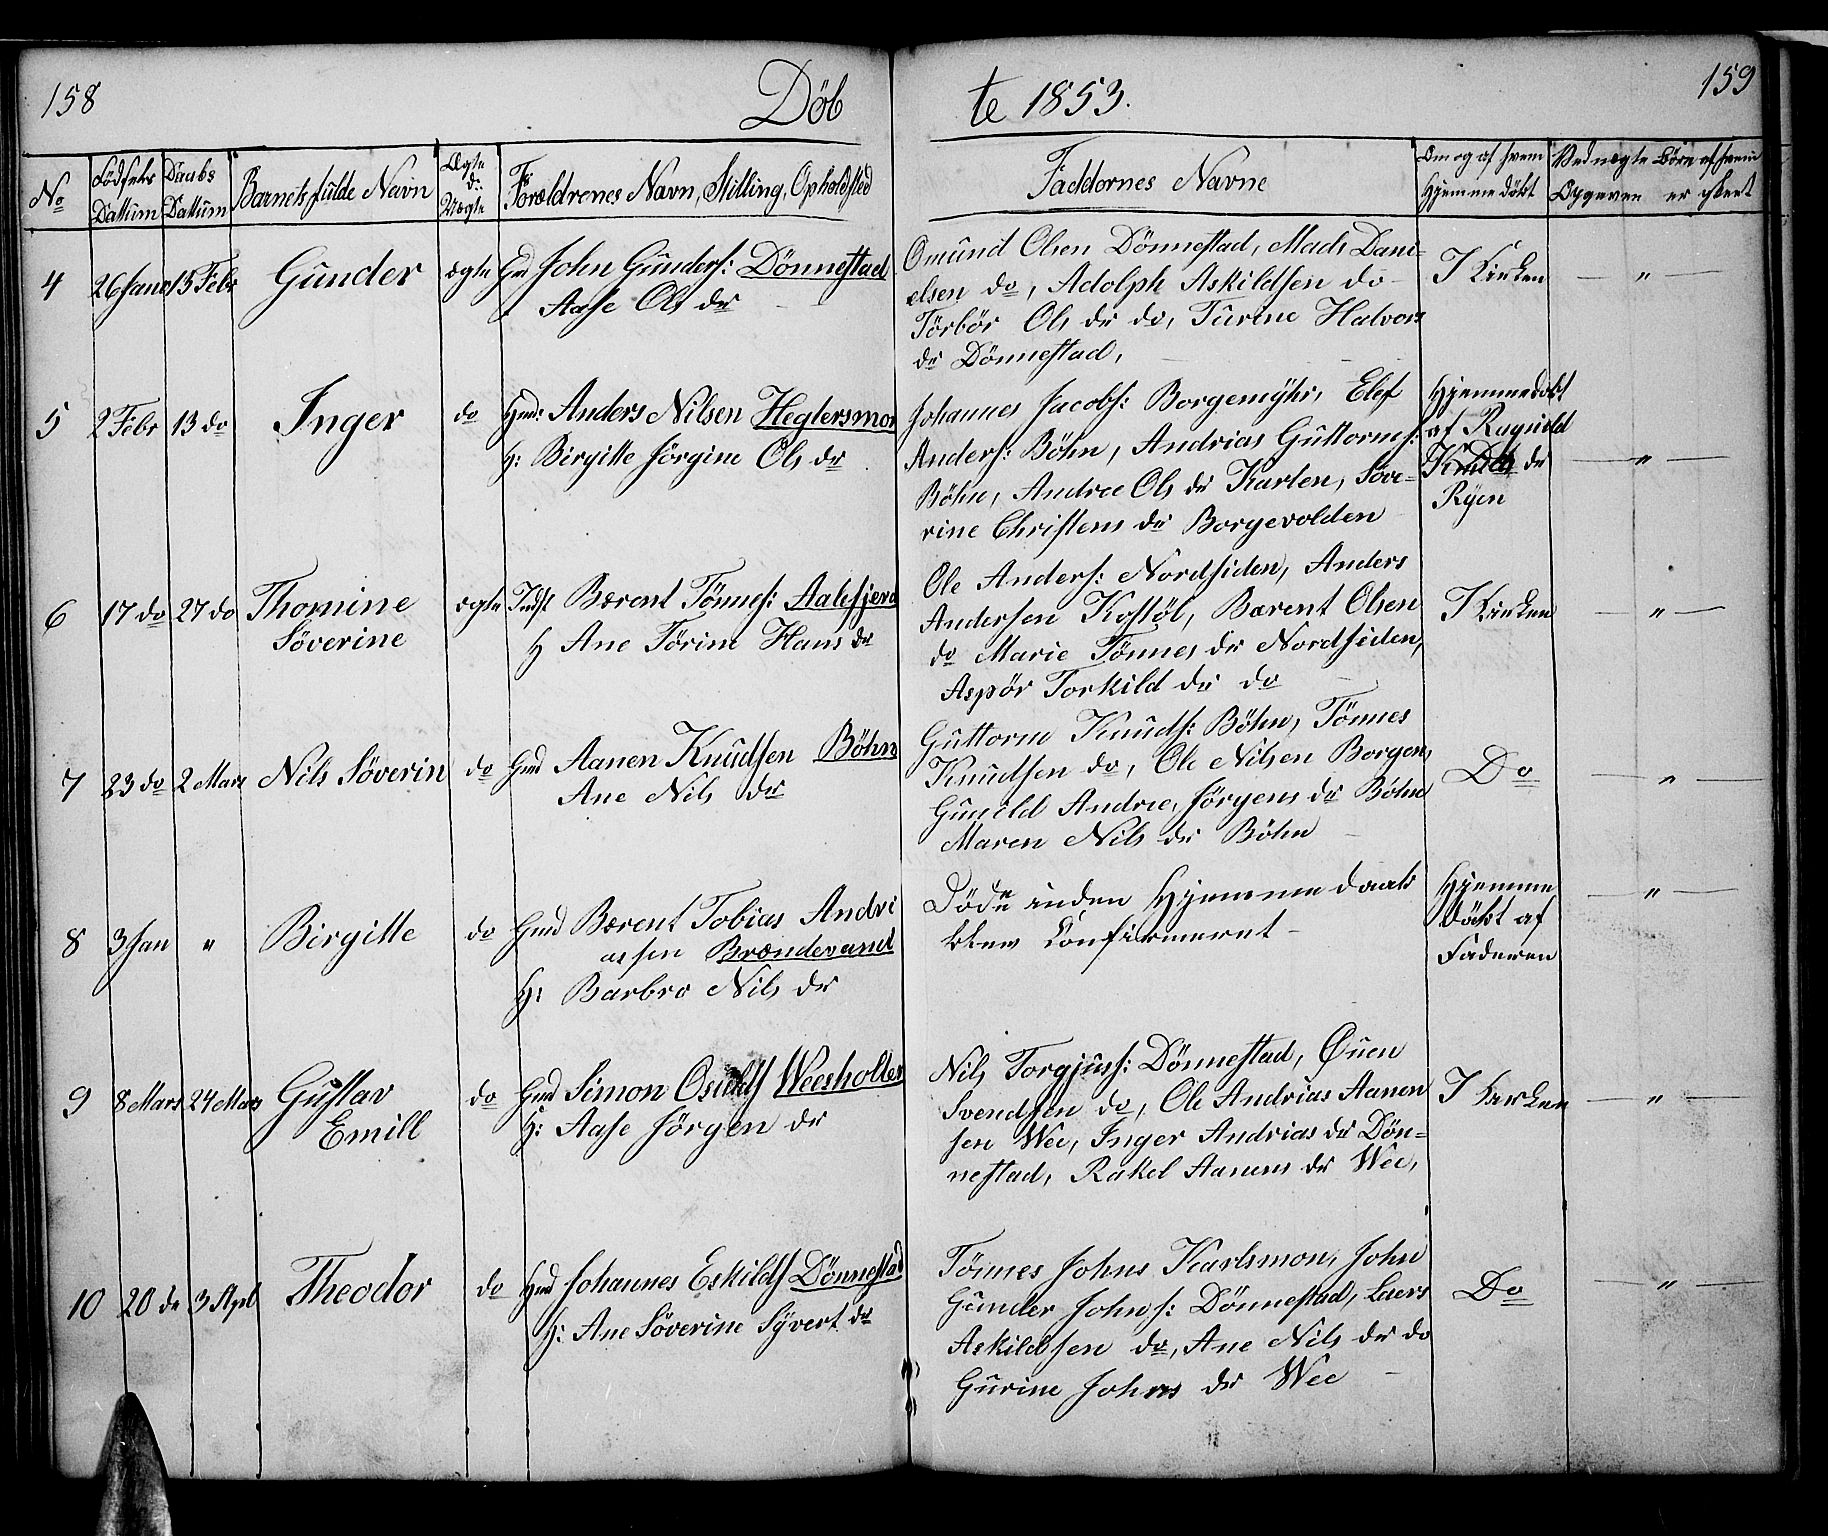 158
Döb
te 1853.
159
No
Födsels Dattum
Daabs Dattum
Barnets fulde Navn
Ægte el. Uægte
Forældrenes Navn, Stilling, Opholdsted
Faddernes Navne
Om og af hvem Hjemmedöbt
Ved uægte Börn af hvem Opgaven er skeet
4 26 Janr 15 Febr Gunder ægte Gmd John Gunders: Dönnestad
Aase Ols dr
Omund Olsen Dönnestad, Mads Dani-
elsen do, Adolph Askildsen do
Törbör Ols dr do, Turine Halvors
dr Dönnestad,
I Kirken — " —
5 2 Febr 13 do Inger do Gmd: Anders Nilsen Heglersmon
H: Birgitte Jörgine Ols dr
Johannes Jacobs: Borgemÿhr, Elef
Anders: Böhn, Andrias Guttorms:
Böhn, Andrea Ols dr Karlen, Söve-
rine Christens dr Borgevolden
Hjemmedöbt
af Ragnild
Knuds dr
Rÿen
— " —
6 17 do 27 do Thomine
Söverine
ægte Indst Bærent Tönnes: Aalefjerd
H Ane Törine Hans dr
Ole Anders: Nordsiden, Anders
Andersen Kostöl, Bærent Olsen
do Marie Tönnes dr Nordsiden,
Aspör Torkild dr do
I Kirken — " —
7 23 do 2 Mars Nils Söverin do Gmd Aanen Knudsen Böhn
Ane Nils dr
Guttorm Knuds: Böhn, Tönnes
Knudsen do, Ole Nilsen Borgen,
Gunild Andrea, Jörgens dr Böhn
Maren Nils dr Böhn
Do — " —
8 3 Jan " Birgitte do Gmd Bærent Tobias Andri
assen Brændevand
H: Barbro Nils dr
Döde inden Hjemmedaab
blev Confirmeret
Hjemme
döbt af
Faderen
— " —
9 8 Mars 24 Mars Gustav
Emill
do Gmd Simon Osulds Weesholten
H: Aase Jörgen dr
Nils Torgjuss: Dönnestad, Öuen
Svendsen do, Ole Andrias Aanon
sen Wee, Inger Andrias dr Dön-
nestad, Rakel Aanens dr Wee,
I Kirken — " —
10 20 do 3 Apl Theodor do Gmd Johannes Eskilds Dönnestad
H: Ane Söverine Sÿvert dr
Tönnes Johns Karlsmon, John
Gunder Johns: Dönnestad, Laers
Askildsen do, Ane Nils dr do
Gurine Johns dr Wee
Do — " —